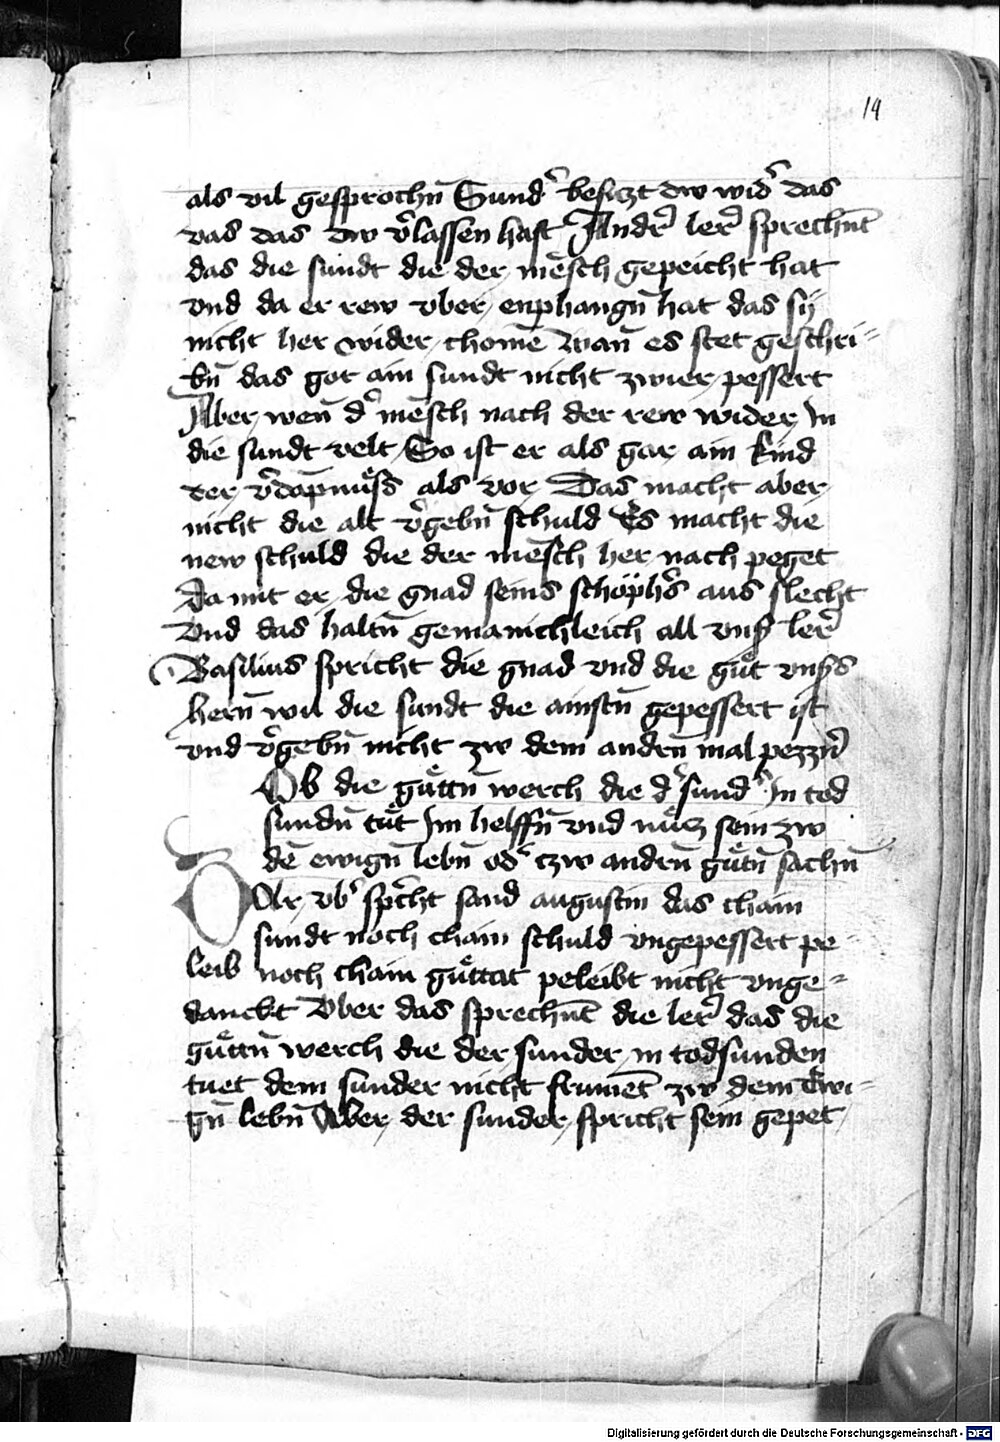 14
als vil gesprochn̄ Sund᷑ besiczt dw wid᷑ das
vas das dw v᷑lassen hast Andr᷑ ler᷑ sprechnt̄
das die sundt die der mēsch gepeicht hat
vnd da er rew vber enphangn̄ hat das sÿ
nicht her wider chomē wan̄ es stet geschri⸗
bn̄ das got ain sundt nicht zwier pessert
Aber wen̄ d᷑ mēsch nach der rew wider In
die sundt velt So ist er als gar ain kind
der v᷑dāpnuͤss als vor Das macht aber
nicht die alt v᷑gebn̄ schuld Es macht die
new schuld die der mēsch her nach peget
Da mit er die gnad seins schöphs᷑ aus slecht
Vnd das haltn̄ gemainchleich all vnß ler᷑
Basilius spricht die gnad vnd die guͤt vnßs
hern̄ wil die sundt die ainstn̄ gepessert ist
vnd v᷑gebn̄ nicht zw dem andrn̄ mal pezzn᷑
Ob die guͤttn̄ werch die d᷑ sund᷑ In tod
sundn̄ tuͤt Im helffn̄ vnd nuͤcz sein zw
dē ewign̄ lebn̄ od᷑ czw andrn̄ guͤtn̄ sachn̄
Dar vb᷑ sp̄cht sand augustin das chain
sundt noch chain schuld vngepessert pe⸗
leib noch chain guͤttat peleibt nicht vnge⸗
danckt Vber das sprechnt̄ die ler᷑ das die
guͤttn̄ werch die der sunder in todsunden
tuet dem sunder nicht frumēt zw dem Ewi⸗
gn̄ lebn̄ Aber der sunder spricht sein gepet
Digitalisierung gefördert durch die Deutsche Forschungsgemeinschaft - DFG